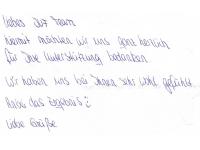 Liebes Team
hiermit möchten wir uns ganz herzlich
für Ihre Unterstützung bedanken
Wir haben uns bei Ihnen sehr wohl gefühlt
das Ergebnis :)
Liebe Grüße